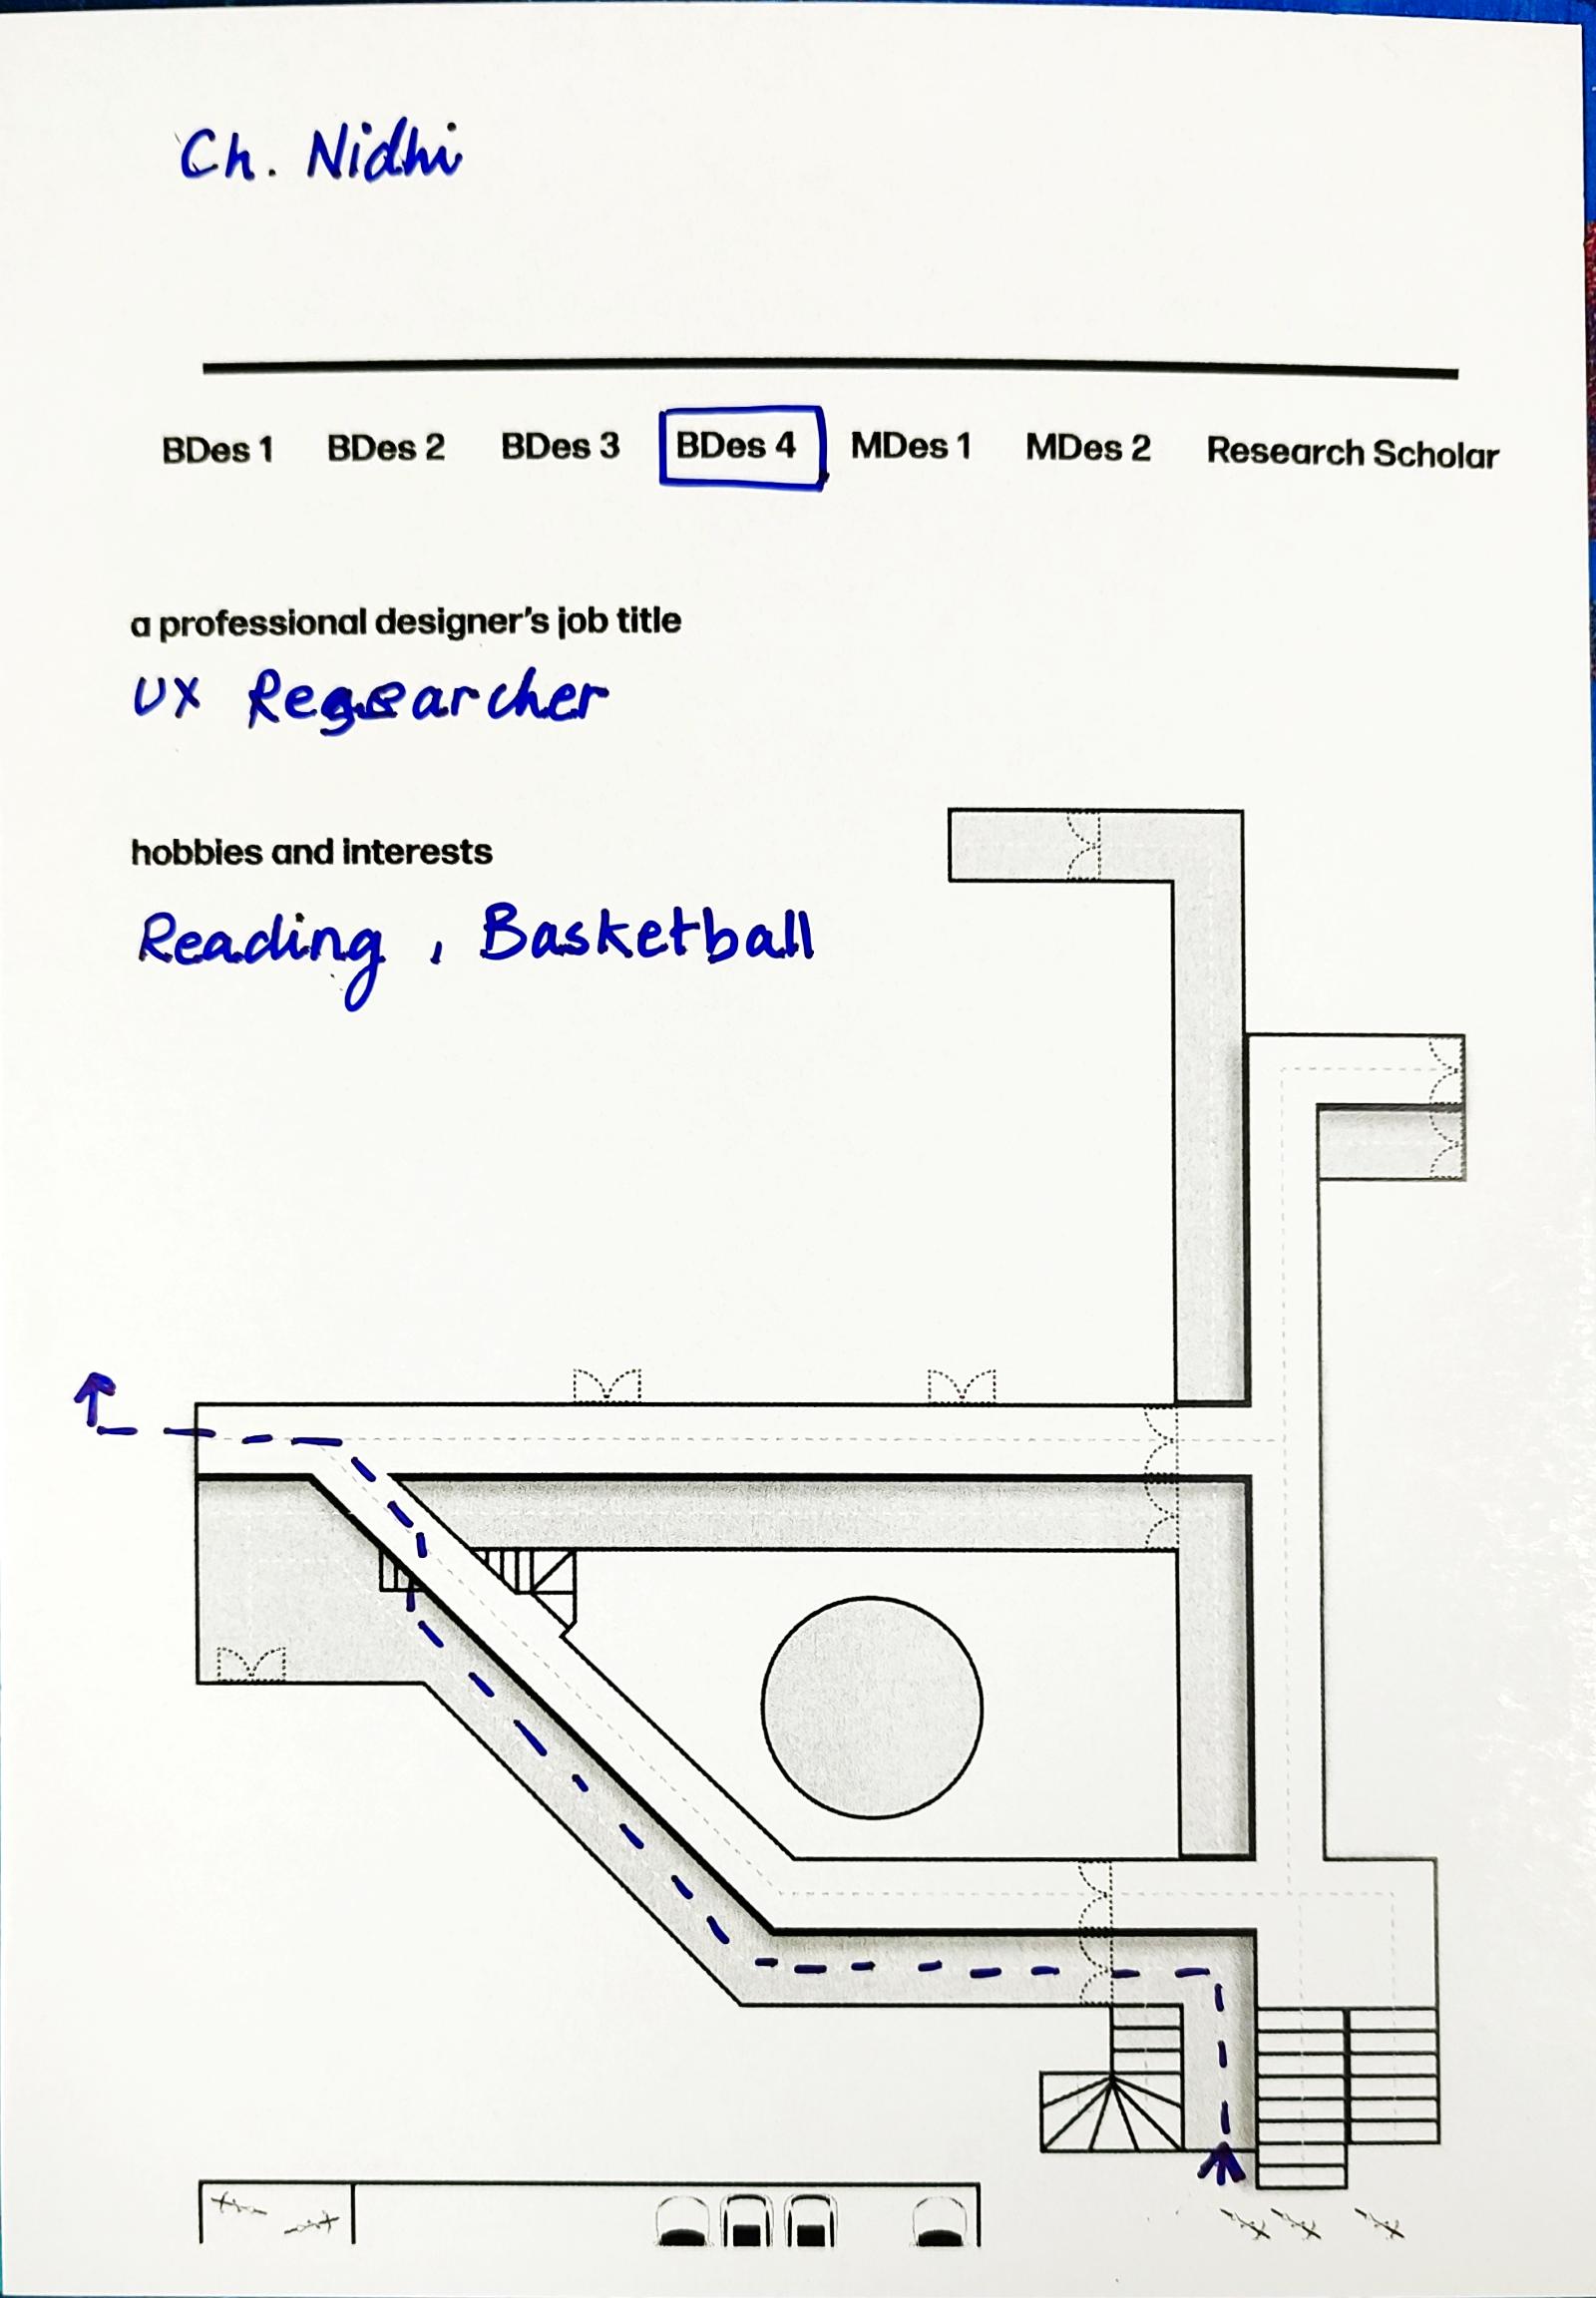 Ch. Nidhi
BDes 1 BDes 2 BDes 3 BDes 4 MDes 1 MDes 2 Research Scholar
a professional designer's job title
UX Researcher
hobbies and interests
Reading , Basketball